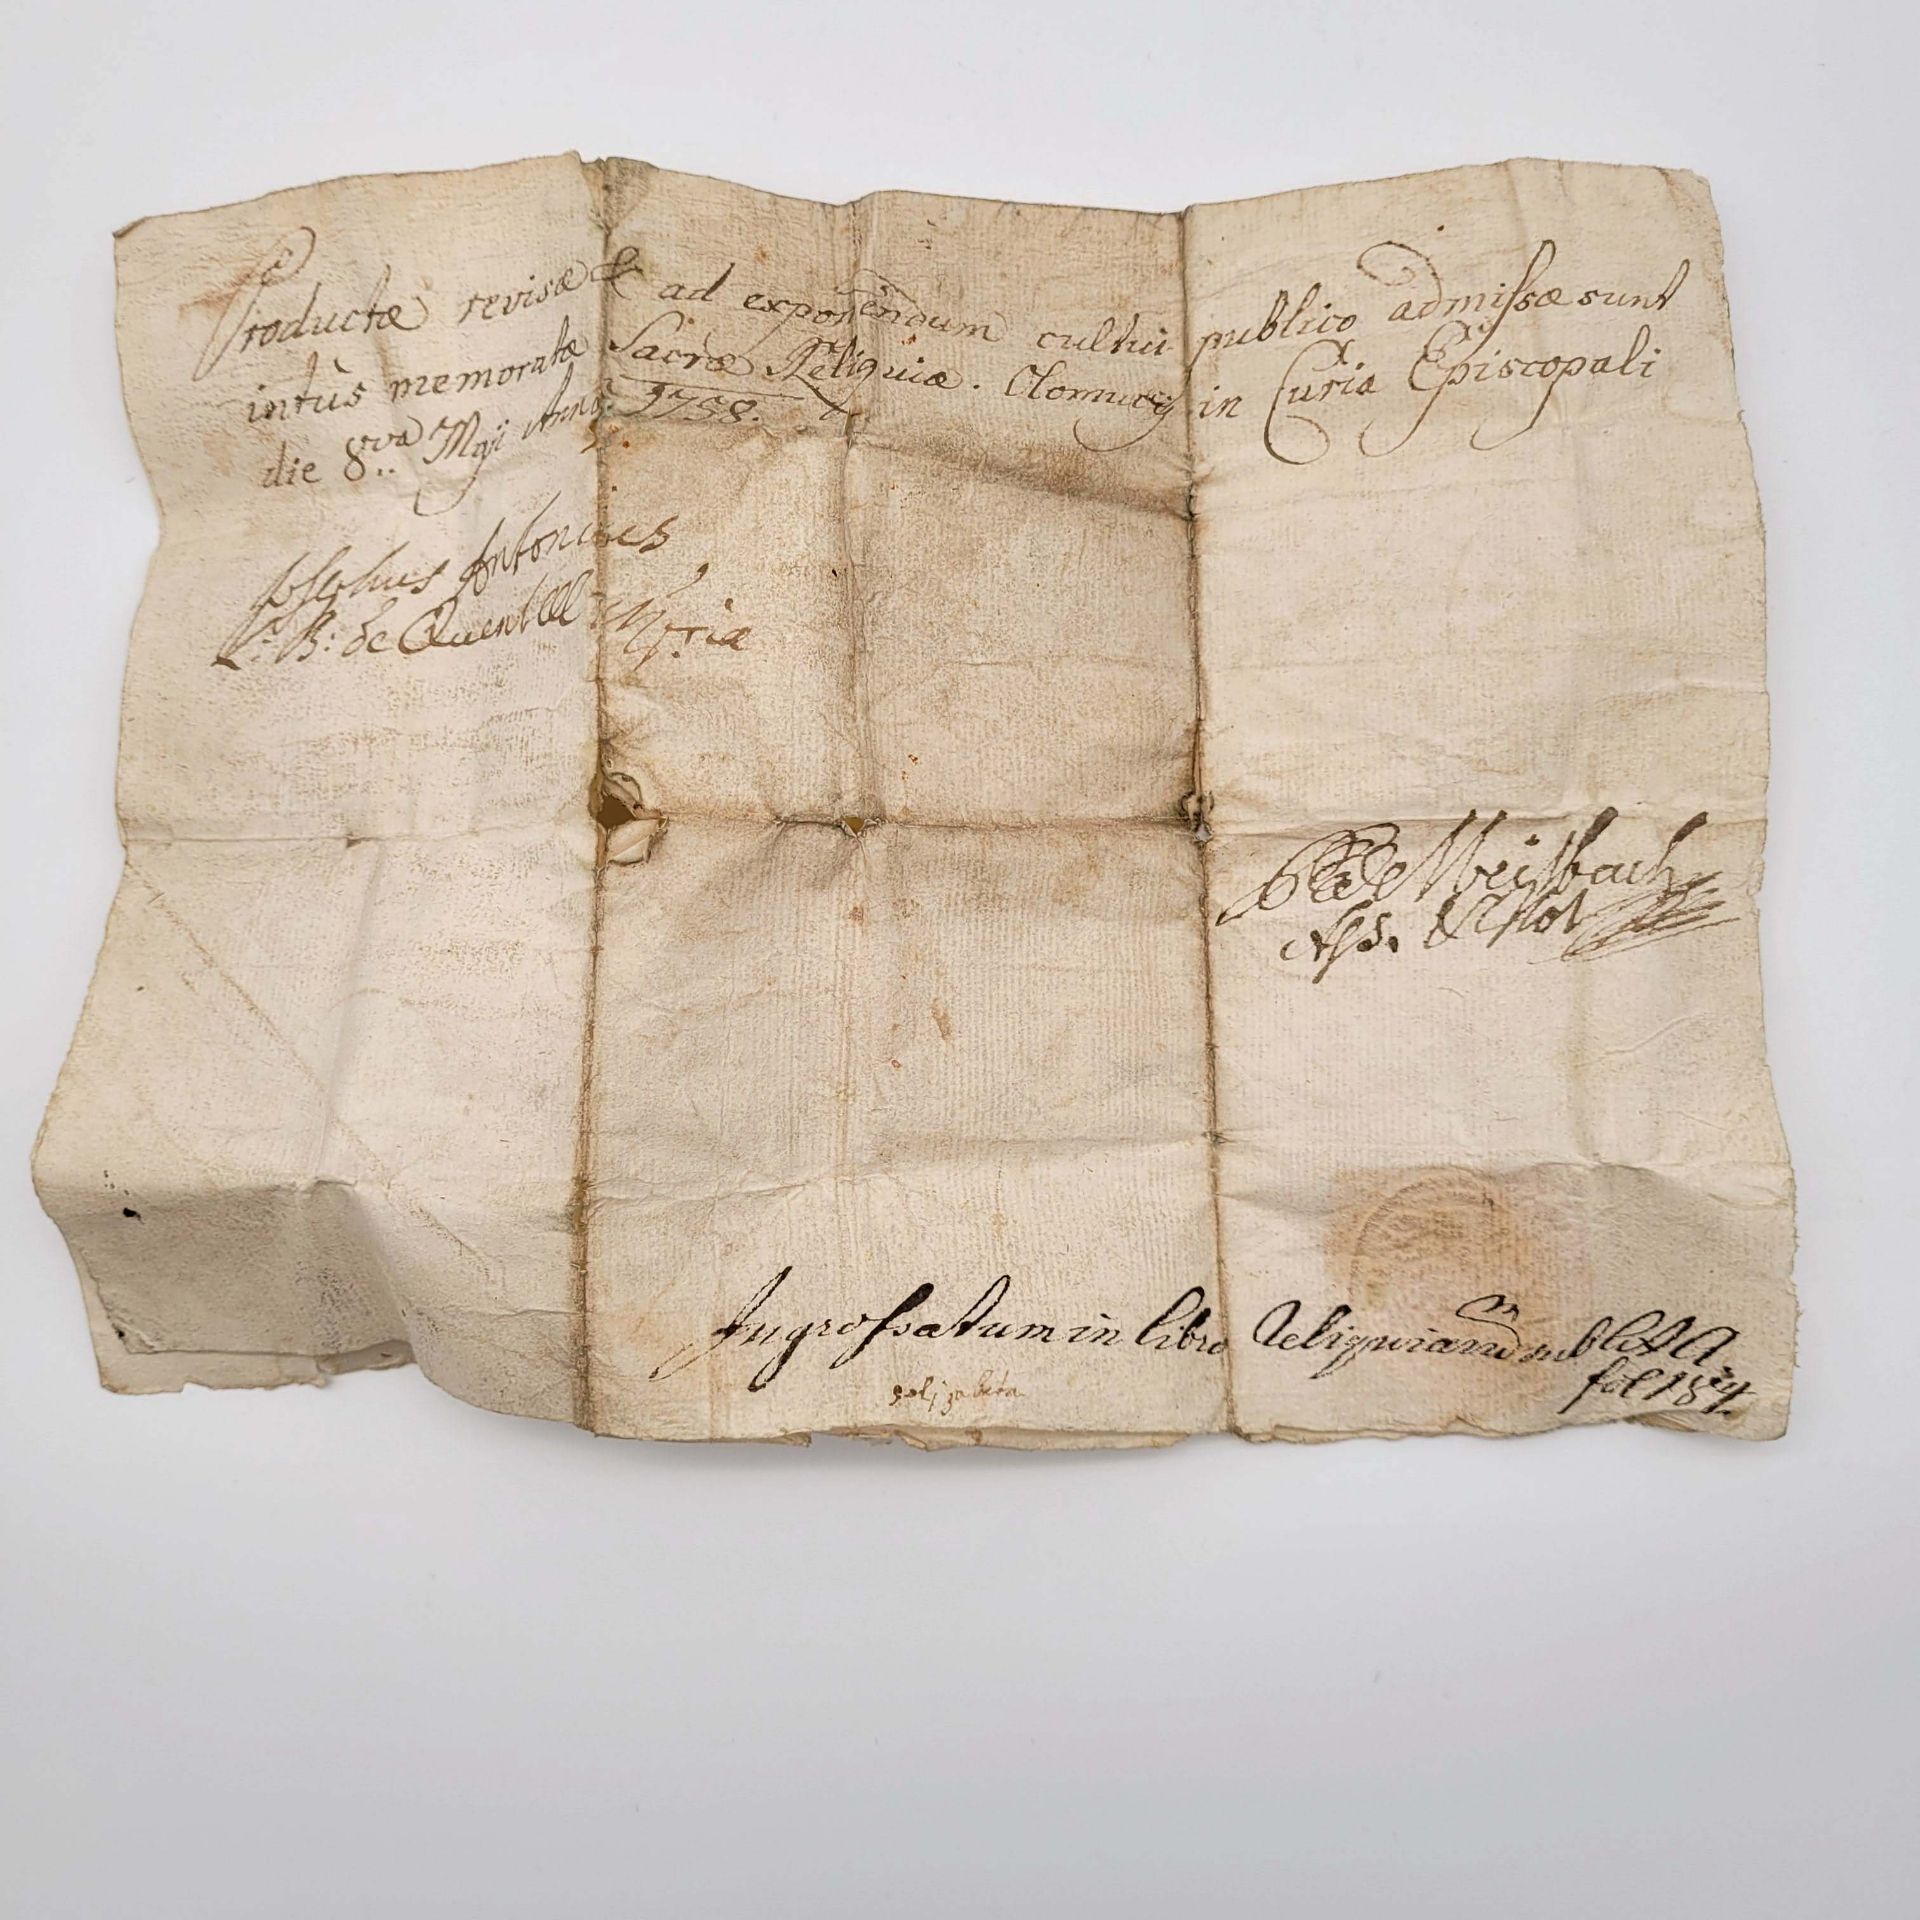 Productæ revisæ & ad exponendum cultui publico admissæ sunt
intùs memoratæ Sacræ Reliquiæ. Olomucij in Curia Episcopali
die 8va Maji Anno. 1758.
Josephus Antonius
L: B: de Quentell
de Meisbach
Ingrossatum in libro Reliquiarũ sub lit A
fol 184